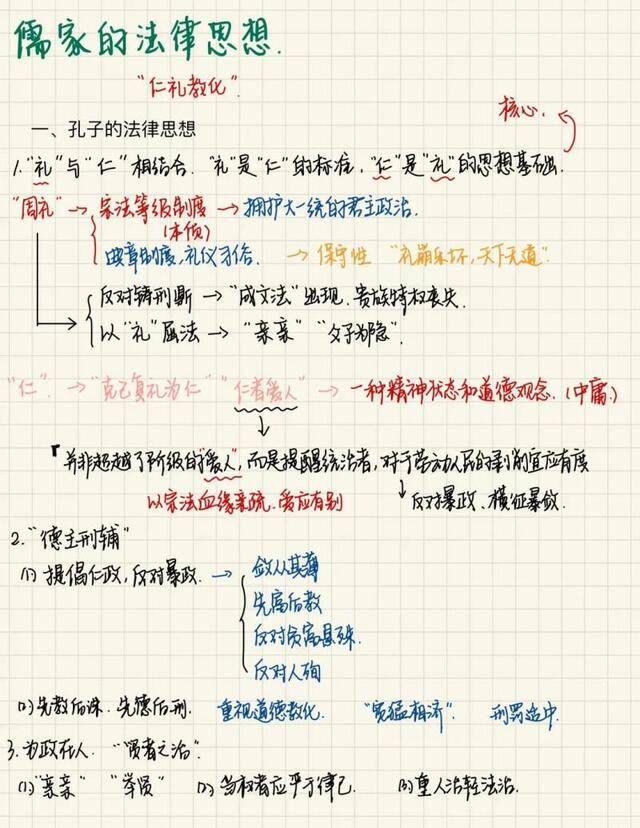 儒家的法律思想.
"仁礼教化".
核心.
一、孔子的法律思想
1."礼"与"仁"相结合. "礼"是"仁"的标准,"仁"是"礼"的思想基础.
"周礼"→宗法等级制度→拥护大一统的君主政治.
(本质)
典章制度,礼仪习俗. →保守性 "礼崩乐坏,天下无道".
反对铸刑鼎→"成文法"出现.贵族特权丧失.
以"礼"屈法→"亲亲""父子为隐".
"仁".→"克己复礼为仁""仁者爱人"→一种精神状态和道德观念.(中庸.)
「并非超越了阶级的"爱人",而是提醒统治者,对于劳动人民的剥削宜应有度
以宗法血缘亲疏.爱应有别 反对暴政、横征暴敛.
2."德主刑辅"
(1)提倡仁政,反对暴政.→敛从其薄
先富后教
反对贫富悬殊.
反对人殉
(2)先教后诛.先德后刑. 重视道德教化. "宽猛相济". 刑罚适中.
3.为政在人. "贤者之治".
(1)"亲亲" "举贤" (2)当权者应严于律己. (3)重人治轻法治.